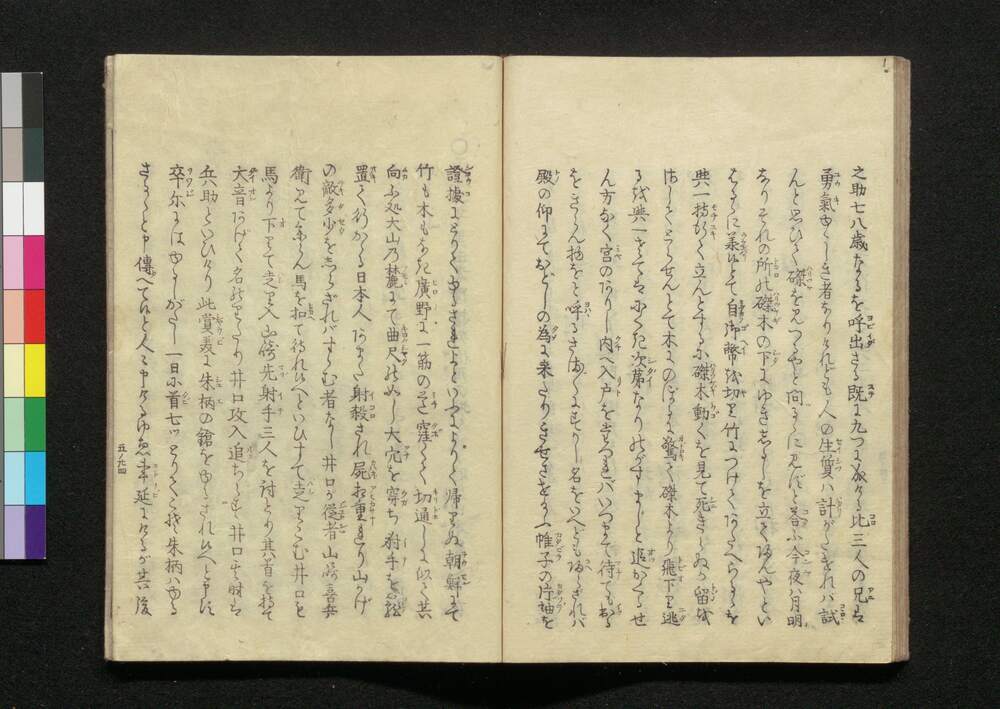 之助七八歳なるを呼出さる既に九つに及ける比三人の兄は
勇氣ゆゝしき者なりけれども人の生質ハ計がたきれハ試
んと思ひけん磔を見つるやと問るゝに見ずと答ふ今夜ハ月明
なりそれの所の磔木の下にゆきしるしを立てかへらんやとい
はるゝに易しとて自御幣を切り竹につけてあたへらるゝを
與一持行て立んとするに磔木動くを見て死きらぬか留を
さしてとらせんとて木にのぼるに驚て磔木より飛下り逃
るを與一きたなき次第なりのがすまじと追かくるせ
ん方なく宮のありし内へ入戸を立つればいつまで待てもある
をきらん物をと呼る名をいへども
殿の仰にておどしの為に来たりきせさせたまふ帷子の片袖を
證據にとりてゆるされよといふによりて帰りぬ朝鮮にて
竹も木もなき廣野に一筋の道窪くて切通しに似て其
向ふ処大山乃麓にて曲尺のぬし大穴を穿ち射手を
置て行かゝる日本人あまた射殺され屍相重れり山かげ
の敵多少をしらざれバすゝむ者なし井口が從者山崎喜兵
衛見て来らん馬を扣て待れ候へといひすてゝ走りこむ井口を
馬より下りて走り入山崎先射手三人を討とり其首を持て
大音あげて名のりけり井口攻入追ちらす井口其時は
兵助といひけり此賞美に朱柄の鎗をゆるされ候へと申に
卒尓にはゆるしがたし一日に首七ツとりたる者ぞ朱柄ハゆる
さるゝと申傳へて候と人々申けるゆゑ事延にけるが其後
五ノ九四